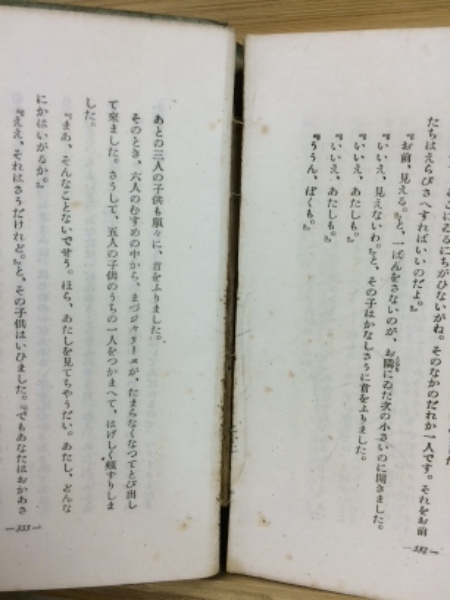 そこにゐるにちがひないがね。そのなかのだれか一人です。それをお前
たちはえらびさへすればいいのだよ。』
『お前、見える。』と、一ばんをさないのが、お隣にゐた次の小さいのに聞きました。
『いいえ、見えないわ。』と、その子はかなしさうに首をふりました。
『いいえ、あたしも。』
『いいえ、あたしも。』
『ううん、ぼくも。』
—332—
あとの三人の子供も順々に、首をふりました。
そのとき、六人のむすめの中から、まづジ が、たまらなくなつてとび出し
て來ました。さうして、五人の子供のうちの一人をつかまへて、はげしく頰ずりしま
した。
『まあ、そんなことないでせう。ほら、あたしを見てちやうだい。あたし、どんな
にかはいがるか。』
『ええ、それはさうだけれど。』と、その子供はいひました。『でもあなたはおかあさ
—333—